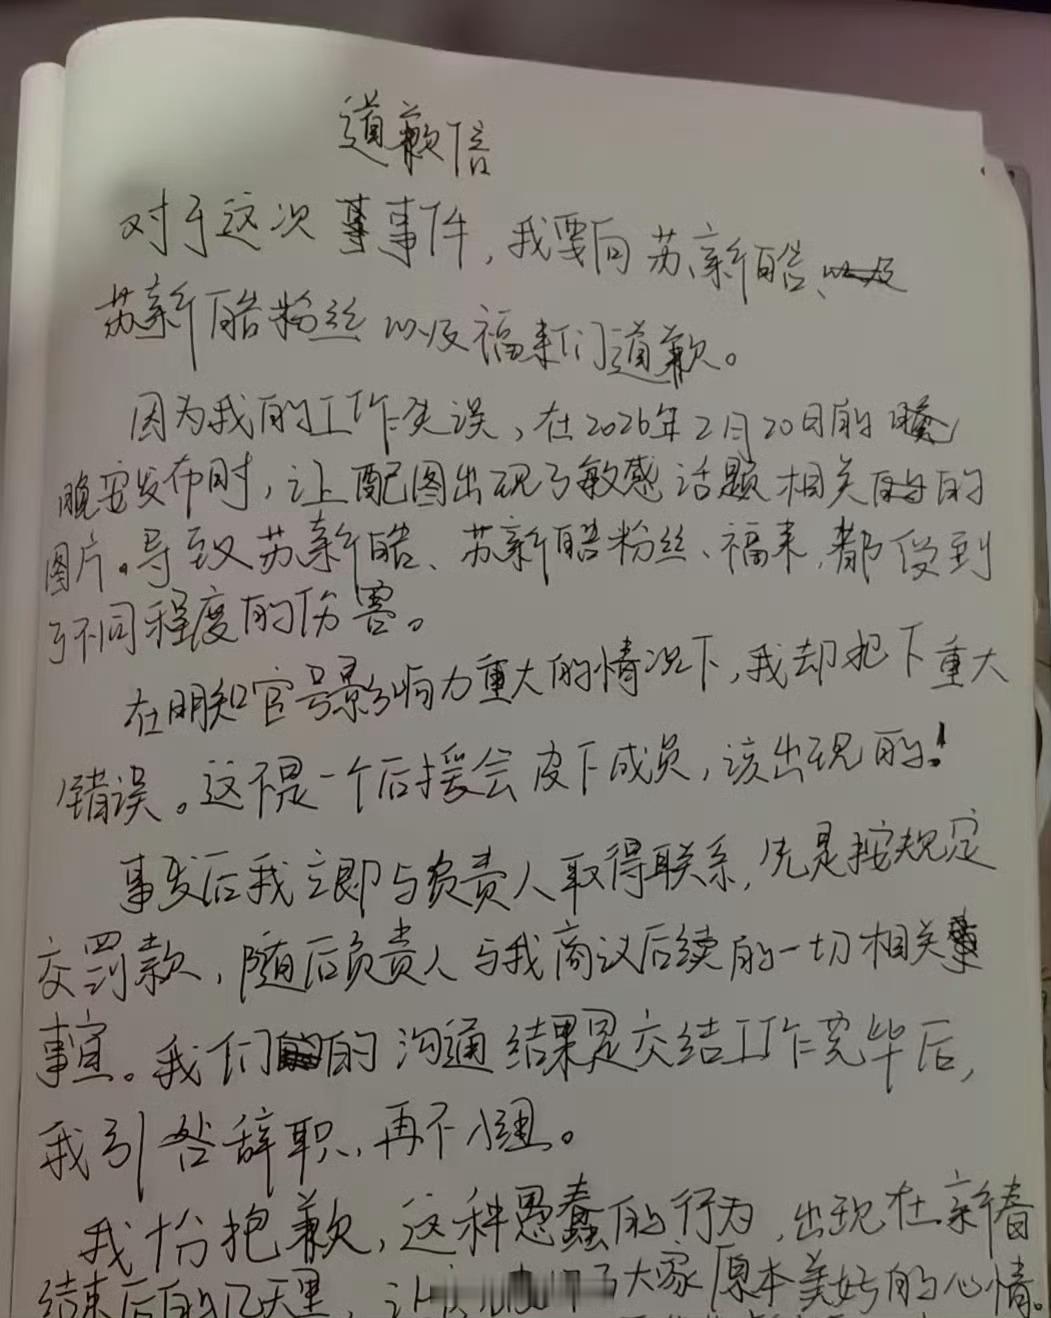 道歉信
对于这次事事件，我要向苏新皓、以及
苏新皓粉丝以及福来们道歉。
因为我的工作失误，在2026年2月20日的晚
晚安发布时，让配图出现了敏感话题相关的的
图片。导致苏新皓、苏新皓粉丝、福来，都受到
了不同程度的伤害。
在明知官号影响力重大的情况下，我却犯下重大
错误。这不是一个后援会皮下成员，该出现的！
事发后我立即与负责人取得联系，先是按规定
交罚款，随后负责人与我商议后续的一切相关事
事宜。我们的沟通结果是交结工作完毕后，
我引咎辞职，再不入组。
我十分抱歉，这种愚蠢的行为，出现在新春
结束后的几天里，让了大家原本美好的心情。